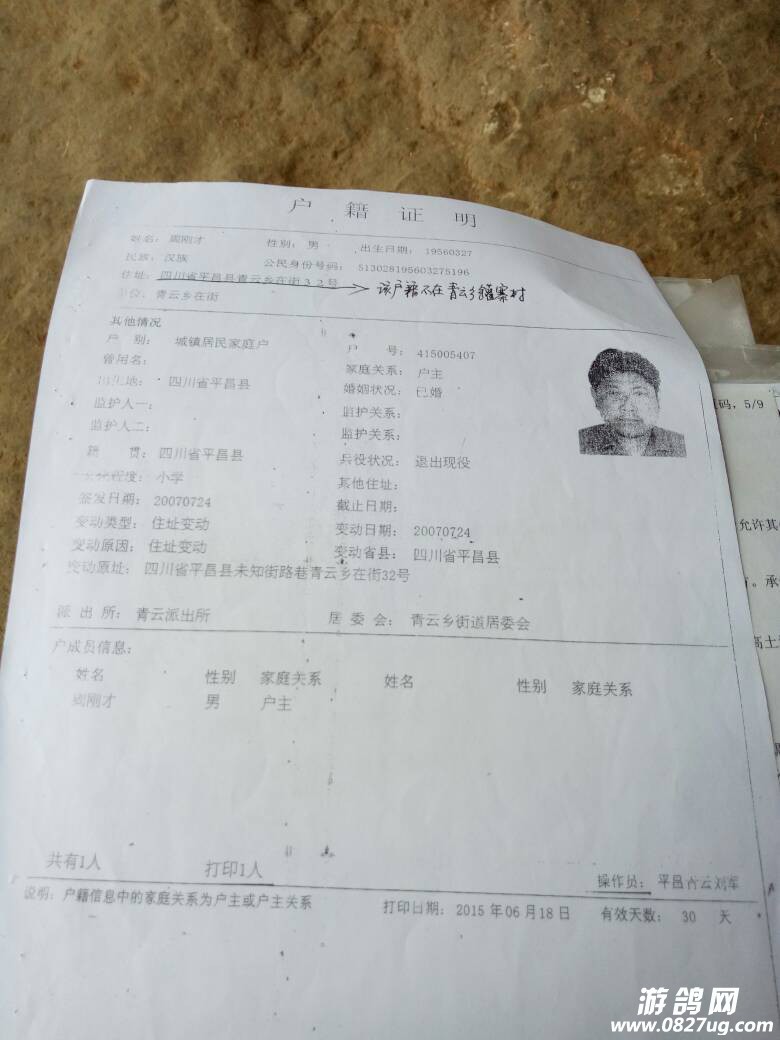 户籍证明
姓名：周刚才 性别：男 出生日期：19560327
民族：汉族 公民身份号码：513028195603275196
住址：四川省平昌县青云乡在街32号 该户籍不在青云乡 寨村
单位：青云乡在街
其他情况
户别：城镇居民家庭户 户号：415005407
曾用名： 家庭关系：户主
出生地：四川省平昌县 婚姻状况：已婚
监护人一： 监护关系：
监护人二： 监护关系：
籍贯：四川省平昌县 兵役状况：退出现役
文化程度：小学 其他住址：
签发日期：20070724 截止日期：
变动类型：住址变动 变动日期：20070724
变动原因：住址变动 变动省县：四川省平昌县
变动原址：四川省平昌县未知街路巷青云乡在街32号
派出所：青云派出所 居委会：青云乡街道居委会
户成员信息：
姓名 性别 家庭关系 姓名 性别 家庭关系
周刚才 男 户主
共有1人 打印1人 操作员：平昌青云刘军
说明：户籍信息中的家庭关系为户主或户主关系 打印日期：2015年06月18日 有效天数：30 天
码，5/9
允许其
。承
高土
游鸽网
www.0827ug.com